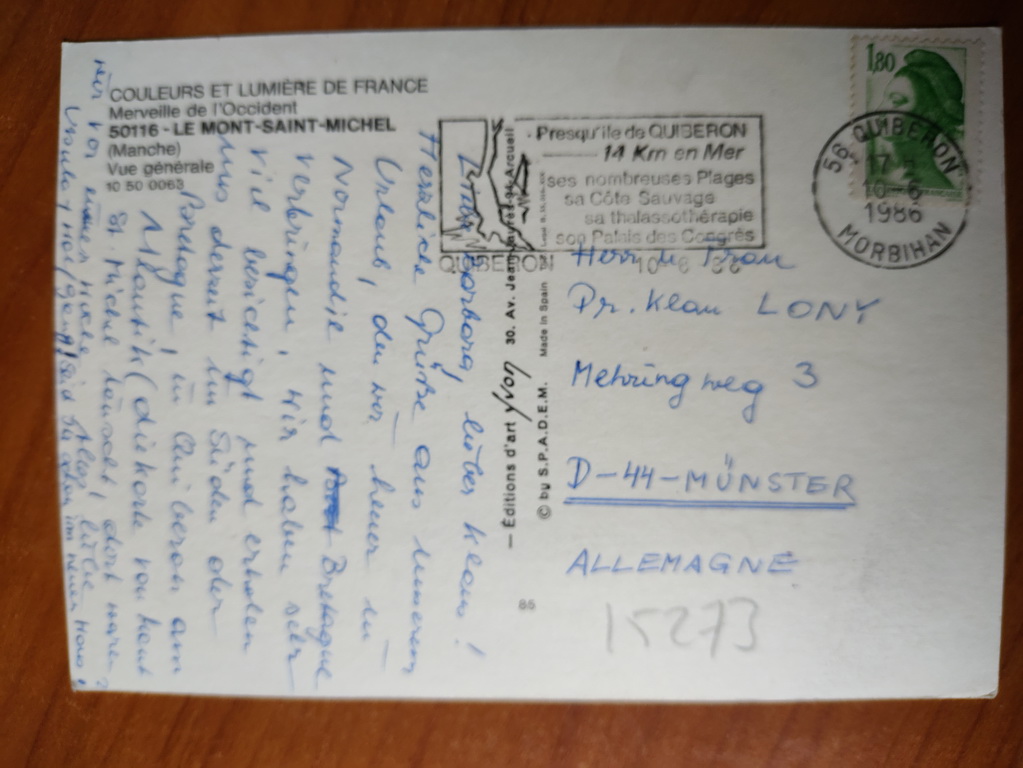 COULEURS ET LUMIÈRE DE FRANCE
Merveille de l'Occident
50116 - LE MONT-SAINT-MICHEL
(Manche)
Vue générale
10 50 0063
Liebe lieber Klaus!
Herzliche Grüße aus unserem
Urlaub, den wir heuer in
Normandie und Bretagne
verbringen, wir haben sehr
viel besichtigt und erholen
uns derzeit im Süden der
Bretagne, in Quiberon am
Atlantik (die Karte von heut
St. Michel täuscht, dort waren
wir vor einer Woche
Seid Ihr schon im neuen Haus?
— Éditions d'art yvon 30. Av. Jean Jaurès-94-Arcueil
© by S.P.A.D.E.M. Made in Spain
85
Presqu'ile de QUIBERON
14 Km en Mer
ses nombreuses Plages
sa Côte Sauvage
sa thalassothérapie
son Palais des Congrès
QUIBERON 10-6 86
1,80
56 QUIBERON
17 H
10-6
1986
MORBIHAN
Herr u. Frau
Dr. Klaus LONY
Mehringweg 3
D-44-MÜNSTER
ALLEMAGNE
15273